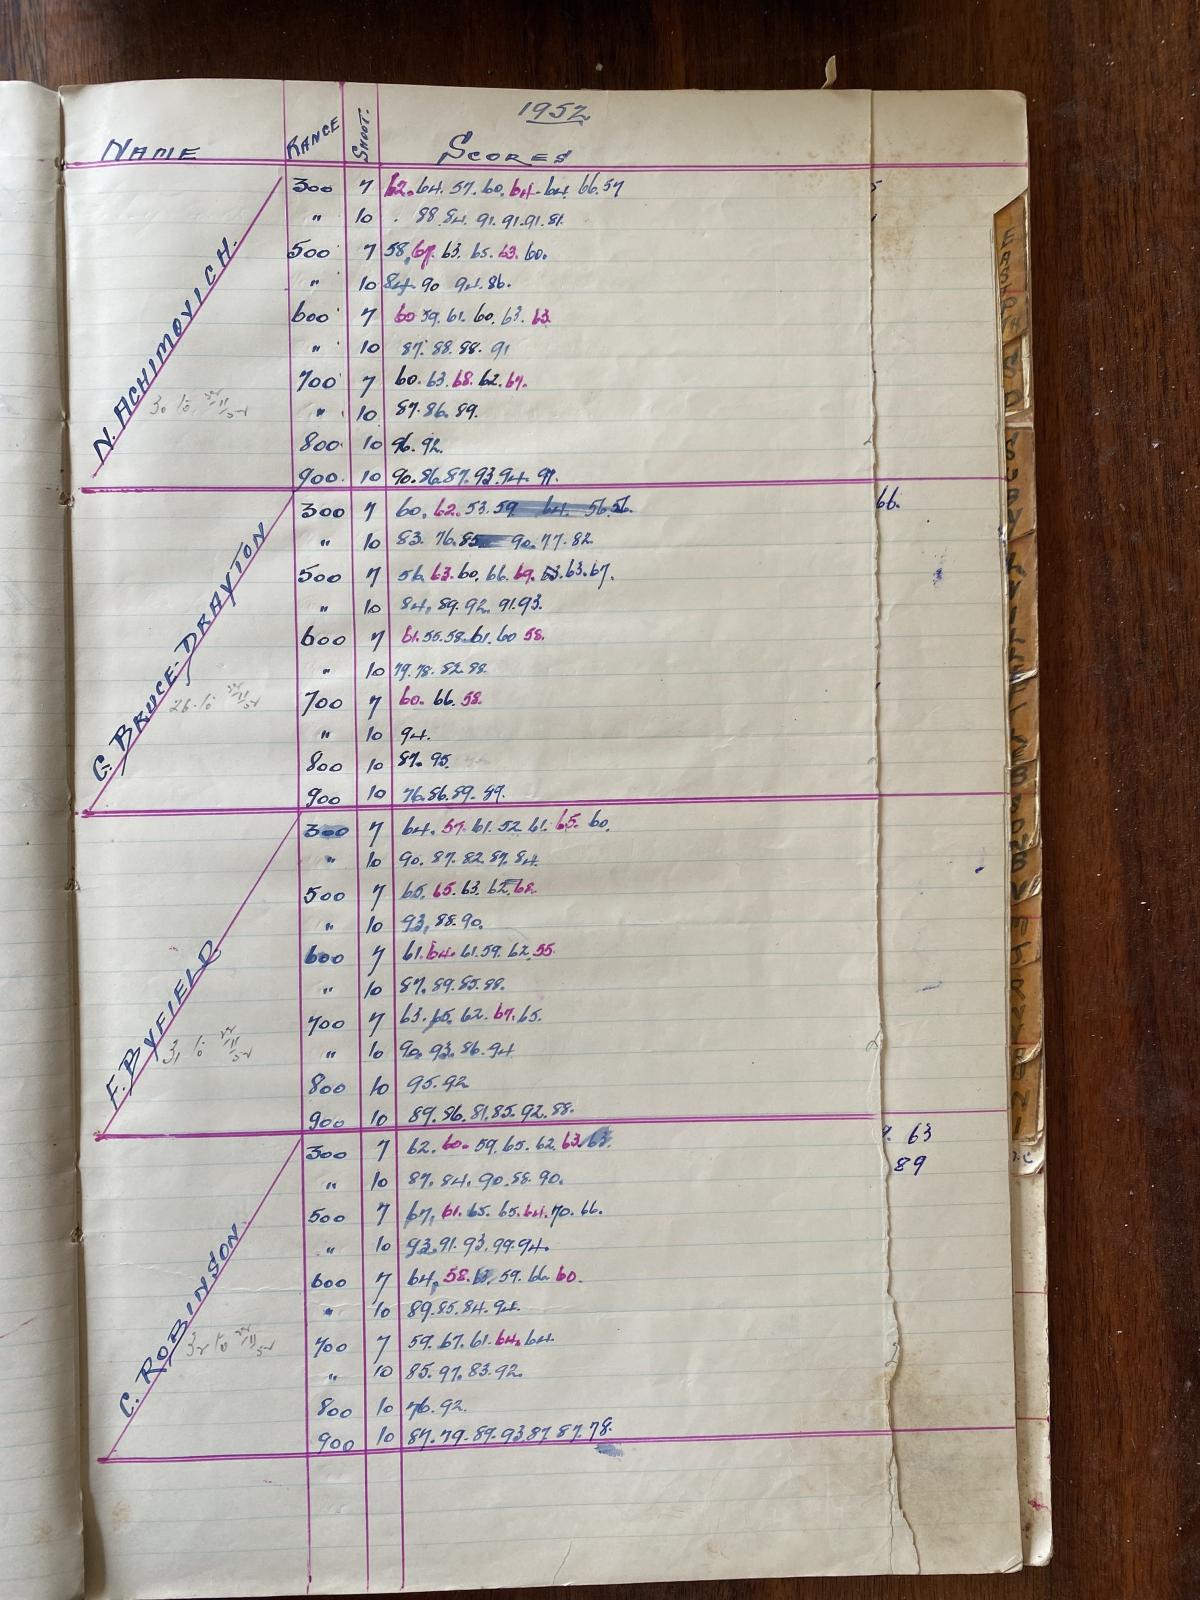 1952
NAME RANGE SHOOT. SCORES
N. ACHIMOVICH.
300 7 62. 64. 57. 60. 64. 64. 66. 57
" 10 . 88. 84. 91. 91. 91. 81.
500 7 58. 67. 63. 65. 63. 60.
" 10 84. 90 94. 86.
600 7 60 59. 61. 60. 63. 63.
" 10 87. 88. 88. 91
700 7 60. 63. 68. 62. 67.
" 10 87. 86. 89.
800 10 96. 92.
900. 10 90. 86. 87. 93. 94. 97.
G. BRUCE-DRAYTON
300 7 60. 62. 53. 59 64. 56. 56. 66.
" 10 83. 76. 85 90. 77. 82
500 7 56. 63. 60. 66. 69. 63. 63. 67.
" 10 84. 89. 92. 91. 93.
600 7 61. 55. 58. 61. 60 58.
" 10 79. 78. 82. 88.
700 7 60. 66. 58.
" 10 94.
800 10 87. 95
900 10 76. 86. 89. 89.
F. BYFIELD
300 7 64. 57. 61. 52 61. 65. 60.
" 10 90. 87. 82. 87. 84.
500 7 65. 65. 63. 62. 68.
" 10 93. 88. 90.
600 7 61. 64. 61. 59. 62. 55
" 10 87. 89. 85. 88.
700 7 63. 65. 62. 67. 65.
" 10 90. 93. 86. 94
800 10 95. 92
900 10 89. 86. 81. 85. 92. 88.
C. ROBINSON.
300 7 62. 60. 59. 65. 62. 63. 63. 63
" 10 87. 84. 90. 88. 90. 89
500 7 67. 61. 65. 65. 64. 70. 66.
" 10 93. 91. 93. 99. 94.
600 7 64. 58. 59. 66. 60.
" 10 89. 85. 84. 94.
700 7 59. 67. 61. 64. 64.
" 10 85. 97. 83. 92.
800 10 76. 92.
900 10 87. 79. 89. 93 87 87. 78.